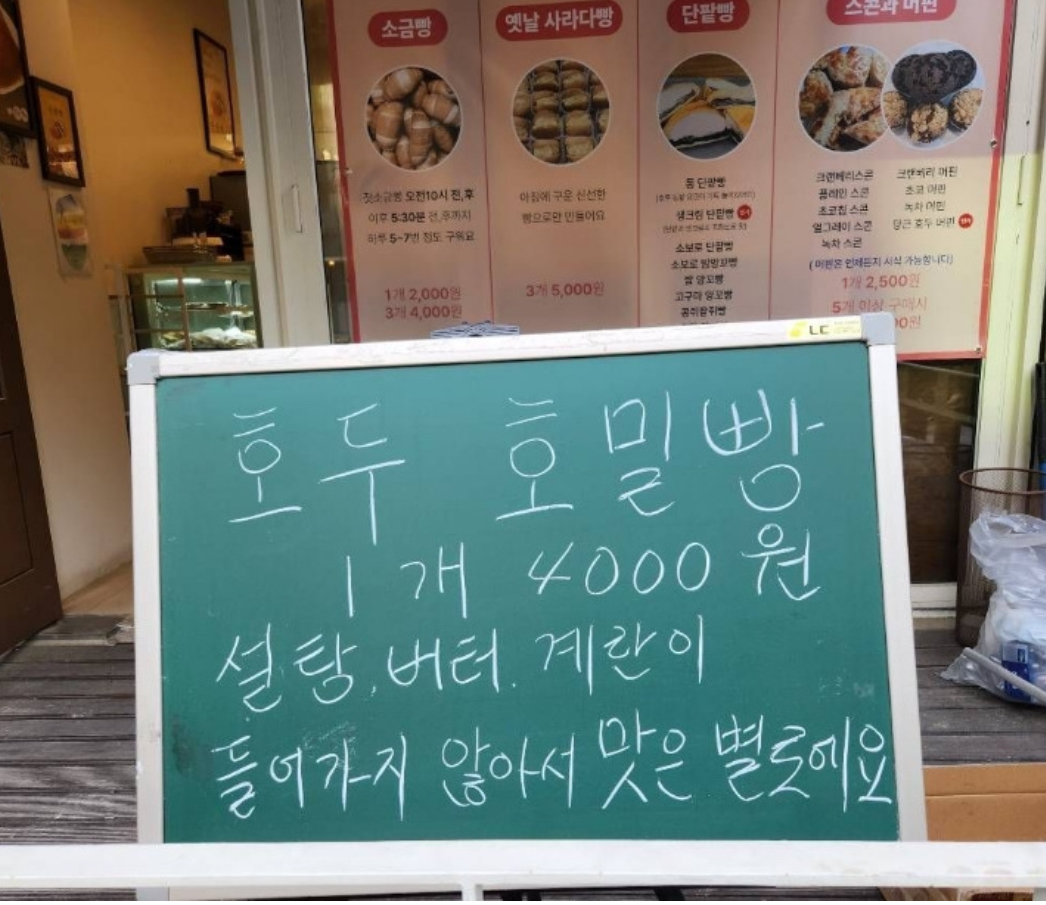 소금빵
옛날 사라다빵
단팥빵
스콘과 머핀
오전10시 전,후
이후 5:30분 전,후까지
하루 5~7번 정도 구워요
1개 2,000원
3개 4,000원
아침에 구운 신선한
빵으로만 만들어요
3개 5,000원
통 단팥빵
생크림 단팥빵
소보로 단팥빵
소보로 맘모빵
쌀 앙꼬빵
고구마 앙꼬빵
크랜베리스콘
플레인 스콘
초코칩 스콘
얼그레이 스콘
녹차 스콘
크랜베리 머핀
초코 머핀
녹차 머핀
당근 호두 머핀
(머핀은 언제든지 시식 가능합니다)
1개 2,500원
5개 이상 구매시
호두 호밀빵
1개 4000원
설탕, 버터, 계란이
들어가지 않아서 맛은 별로에요